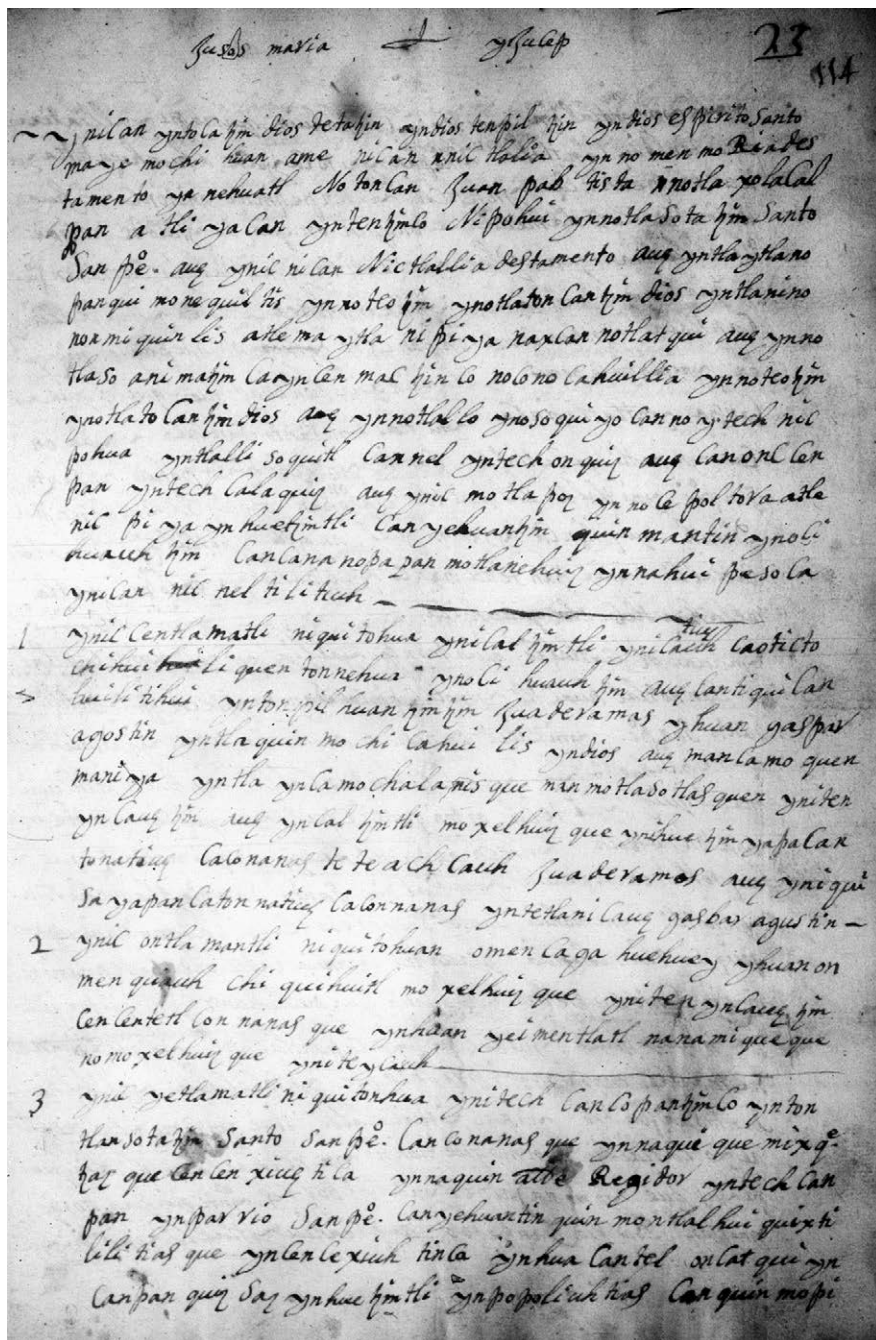 Jusos maria ynJucep 23
114
ynican yntocatzin dios tetatzin yndios tenpiltzin yndios espirito santo
maye mochi huan ame nican nnictlalia ynnomenmoRiades
tamento yanehuatl Notoncan Juan pabtista nnotlaxolacal
pan atliyacan yntentzinco Nipohui ynnotlasotatzin santo
San pe. auq ynic nican Nictlallia destamento auq yntlaytlano
panquimonequiltis ynnoteotzin ynotlatoncantzin dios yntlanino
nonmiquinlis atle ma ytla nipiya naxcan notlatqui auq ynno
tlaso animatzin caynCenmactzinco noconocahuillia ynnoteotzin
ynotlatocantzin dios auq ynnotlallo ynosoquiyo canno ytech nic
pohua yntlalli soquitl Cannel yntech onquiz auq Canonc Cen
pan yntech Calaquiz auq ynic motlapoz ynnocepoltora atle
nic piya ynhuetzintli Canyehuantzin quinmantin ynoCi
huauhtzin CanCana nopapan motlanehuiz ynnahui peso ca
ynican nicneltilituh
1 ynic Centlamatli niquitohua ynicaltzintli ynicauhtiux caoticto
chihuiliquentonnehua ynoCihuauhtzin auq Cantiquican
tuilitihui yntonpilhuantzintzin Juaderamas yhuan gaspar
agostin yntla quinmochicahuilis yndios auq mancamo quen
maniya yntla yncamochalanisque nanmotlasotlasquen yniten
yncauqtzin auq yncaltzintli moxelhuizque ynihuetzin yapacan
tonatiuq caconanas teteachcauh Juaderamos auq yniqui
sayapancatonnatiuq caconnanas yntetlanicauq gasbar agustin
2 ynic ontlamantli niquitohuan omen caga huehuey yhuan on
men quauhchiquihuitl moxelhuizque yniten yncauqtzin
CenCentetl connanasque ynhuan yeimentlatl nanamiqueque
nomoxelhuizque yniteycauh
3 ynic yetlamatli niquitonhua ynitech Cancopantzinco ynton
tlansotatzin santo san pe. Canconanasque ynnaquique mixq
tzazque CenCenxiuqtica ynnaquin alde Regidor yntech Can
pan ynparrio San pe. Canyehuantin quinmontlalhuiquixti
lilitiasque ynCenCexiuhtinca ynhua Cantel oncatqui yn
Canpan quiz Saz ynhuetzintli ynpopoliuhtias Canquinmopi